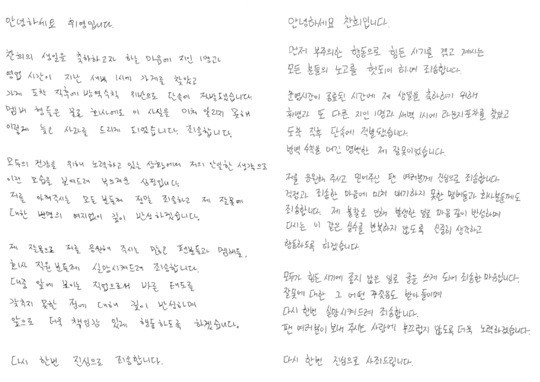 안녕하세요 휘영입니다.
찬희의 생일을 축하하고자 하는 마음에 지인 1명과
영업 시간이 지난 새벽 1시에 가게를 찾았고
가게 도착 직후에 방역수칙 위반으로 단속에 적발됐습니다.
멤버 형들은 물론 회사에도 이 사실을 미처 알리지 못해
이렇게 늦은 사과를 드리게 되었습니다. 죄송합니다.
모두의 건강을 위해 노력하고 있는 상황에서 저의 안일한 생각으로
이런 모습을 보여드려 부끄러운 심정입니다.
저를 아껴주시는 모든 분들께 정말 죄송하고 제 잘못에
대한 변명의 여지없이 깊이 반성하겠습니다.
제 잘못으로 저를 응원해 주시는 많은 팬분들과 멤버들,
회사 직원분들께 실망시켜드려 죄송합니다.
대중 앞에 보이는 직업으로서 바른 태도를
갖추지 못한 점에 대해 깊이 반성하며
앞으로 더욱 책임감 있게 행동하도록 하겠습니다.
다시 한번 진심으로 죄송합니다.
안녕하세요 찬희입니다.
먼저 부주의한 행동으로 힘든 시기를 겪고 계시는
모든 분들의 노고를 헛되이 하여 죄송합니다.
운영시간이 종료된 시간에 제 생일을 축하하기 위해
휘영과 또 다른 지인 1명과 새벽 1시에 라운지포차를 찾았고
도착 직후 단속에 적발됐습니다.
방역 수칙을 어긴 명백한 제 잘못이었습니다.
저를 응원해 주시고 믿어주신 팬 여러분께 진심으로 죄송합니다.
걱정과 죄송한 마음에 미처 얘기하지 못한 멤버들과 회사분들께도
죄송합니다. 제 불찰로 인해 발생한 일을 마음 깊이 반성하며
다시는 이 같은 실수를 반복하지 않도록 신중히 생각하고
행동하도록 하겠습니다.
모두가 힘든 시기에 좋지 않은 일로 글을 쓰게 되어 죄송한 마음입니다.
잘못에 대한 그 어떤 꾸짖음도 받아들이며
다시 한번 실망시켜드려 죄송합니다.
팬 여러분이 보내 주시는 사랑에 부끄럽지 않도록 더욱 노력하겠습니다.
다시 한번 진심으로 사죄드립니다.